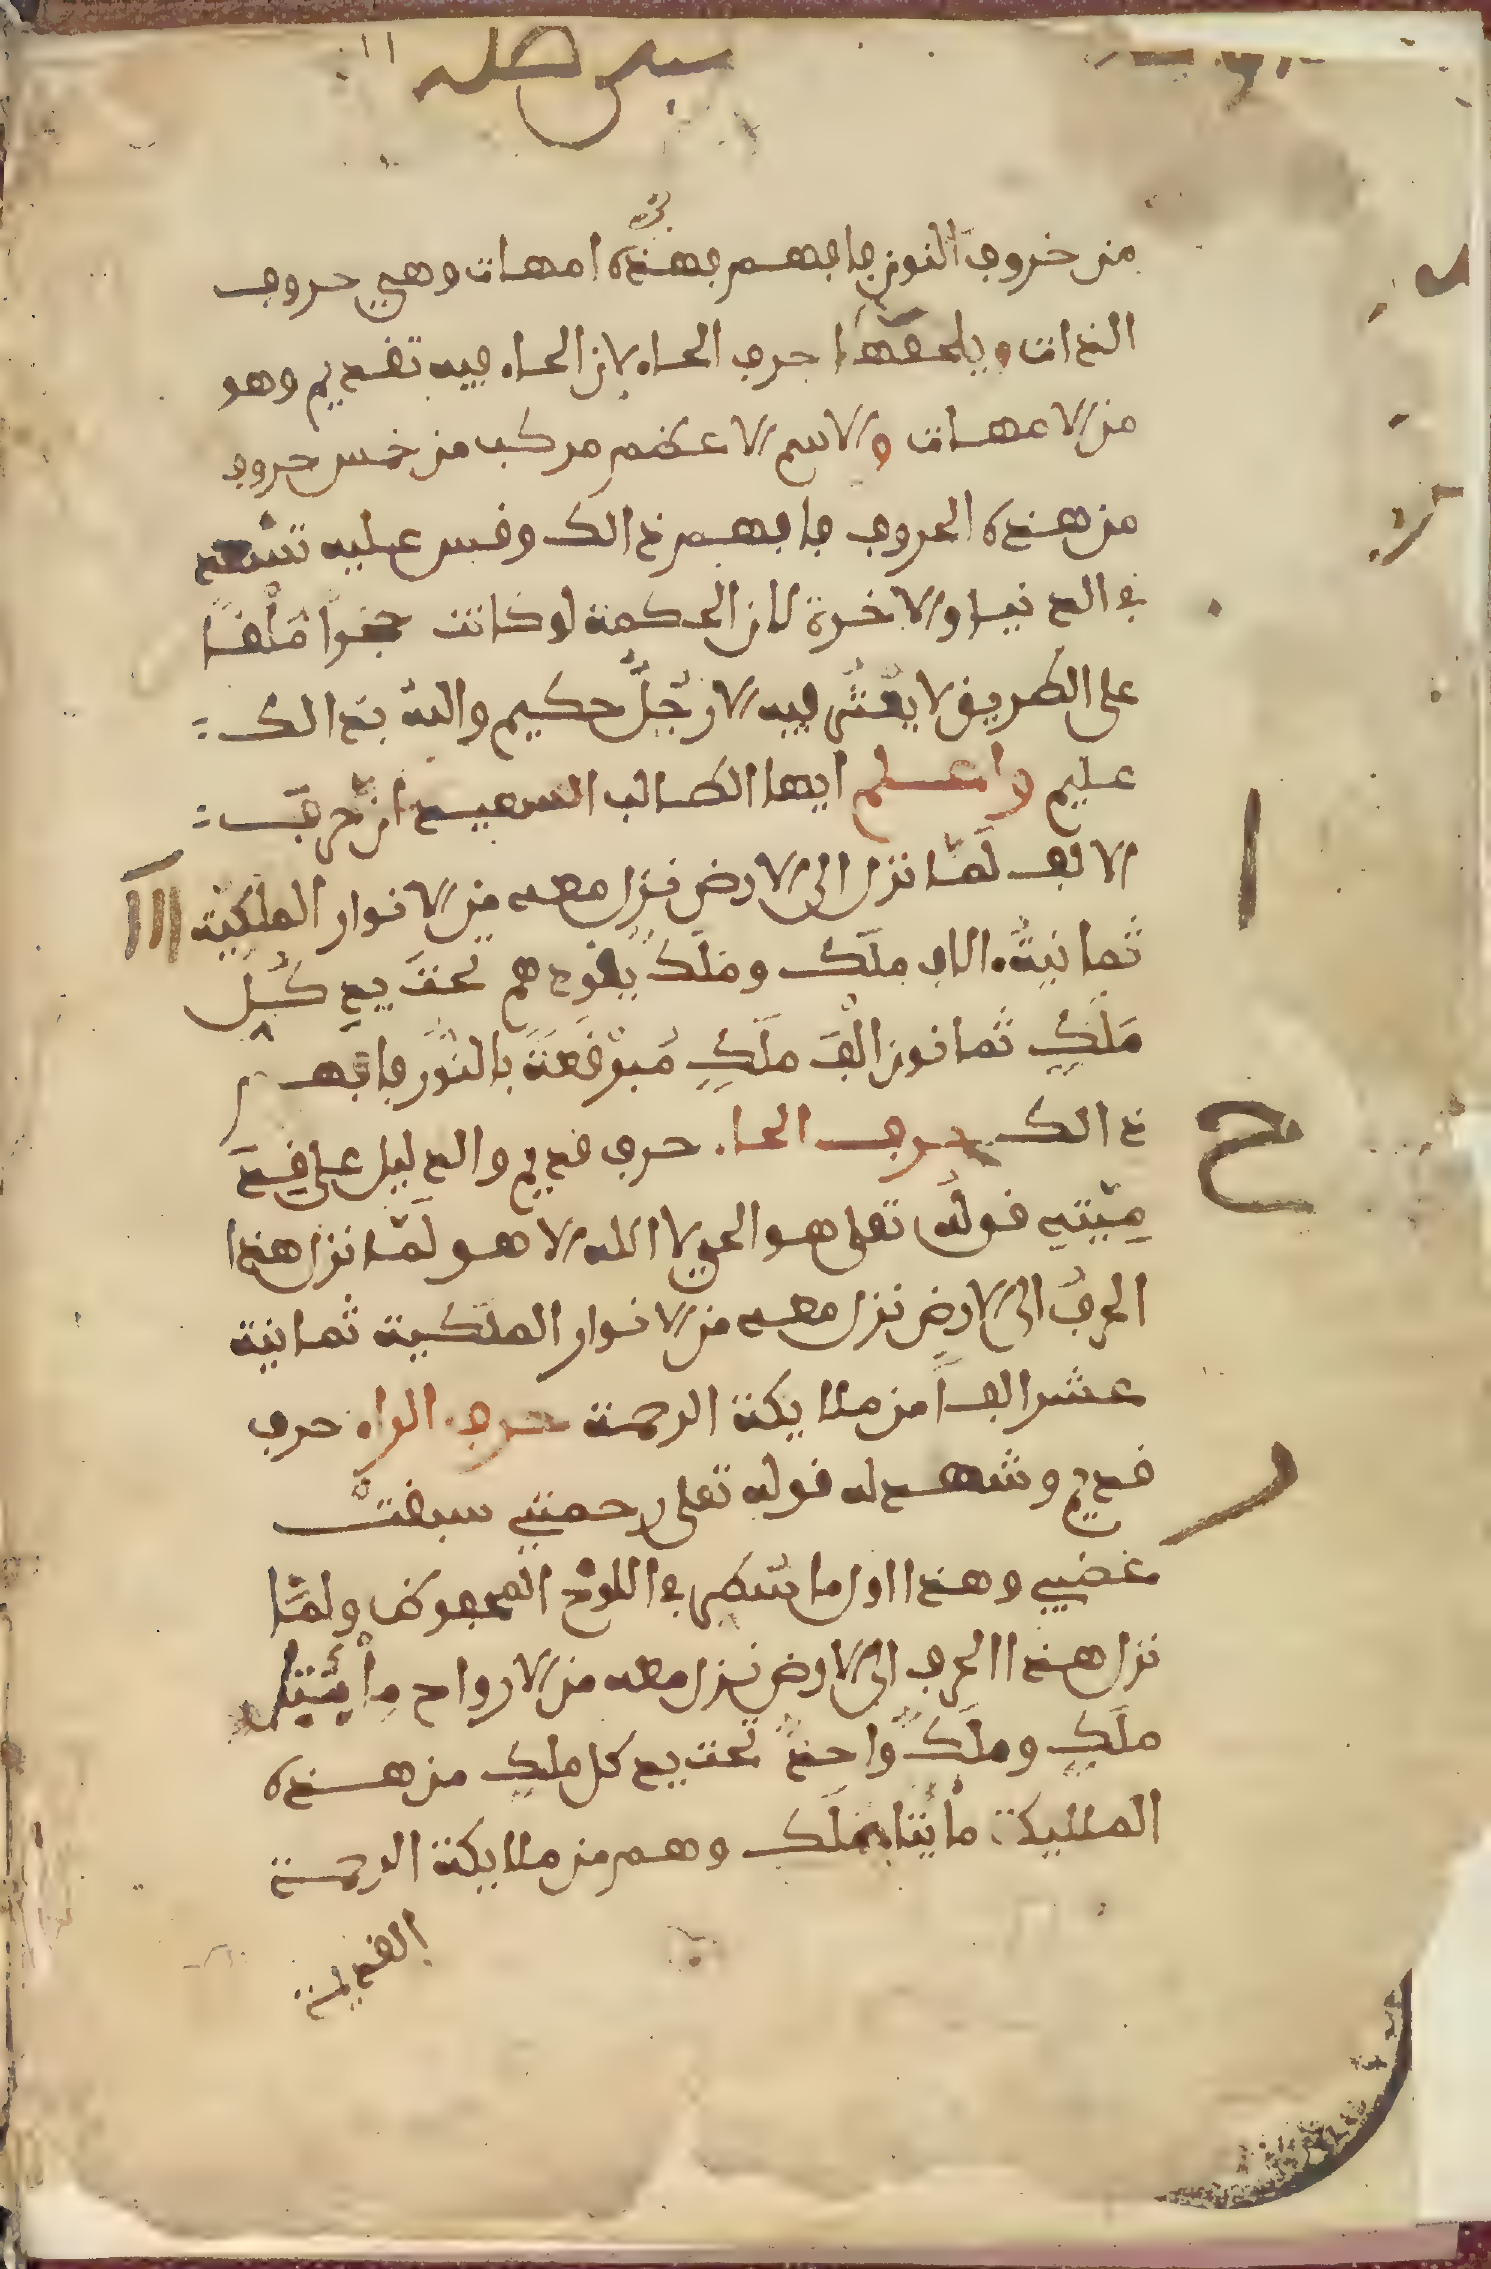 من حروف النون فافهم فهذه امهات وهي حروف
الذات ويلحقها حرف الحاء لان الحاء فيه تقديم وهو
من الامهات والاسم الاعظم مركب من خمس حروف
من هذه الحروف فافهم ذالك وقس عليه تسعد
في الدنيا والاخرة لان الحكمة لو كانت
على الطريق لا يعثر فيه الا رجل حكيم والله بذالك
عليم واعلم ايها الطالب السعيد ان حرف
الالف لما نزل الى الارض نزل معه من الانوار الملكية
ثمانية الاف ملك وملك تحت يد كل
ملك ثمانون الف ملك بالنور فافهم
ذالك حرف الحاء حرف قديم والدليل على قد
ميته قوله تعلى هو الحي لا اله الا هو لما نزل هذا
الحرف الى الارض نزل معه من الانوار الملكية ثمانية
عشر الفا من ملايكة الرحمة حرف الراء حرف
قديم وشهد له قوله تعلى رحمتي سبقت
غضبي وهذا اول ما سطر في اللوح المحفوظ ولما
نزل هذا الحرف الى الارض نزل معه من الارواح مأيتا
ملك وملكا واحدا تحت يد كل ملك من هذه
المليكة مأيتا ملك وهم من ملايكة الرحمة
القديمة
ا
ح
ر